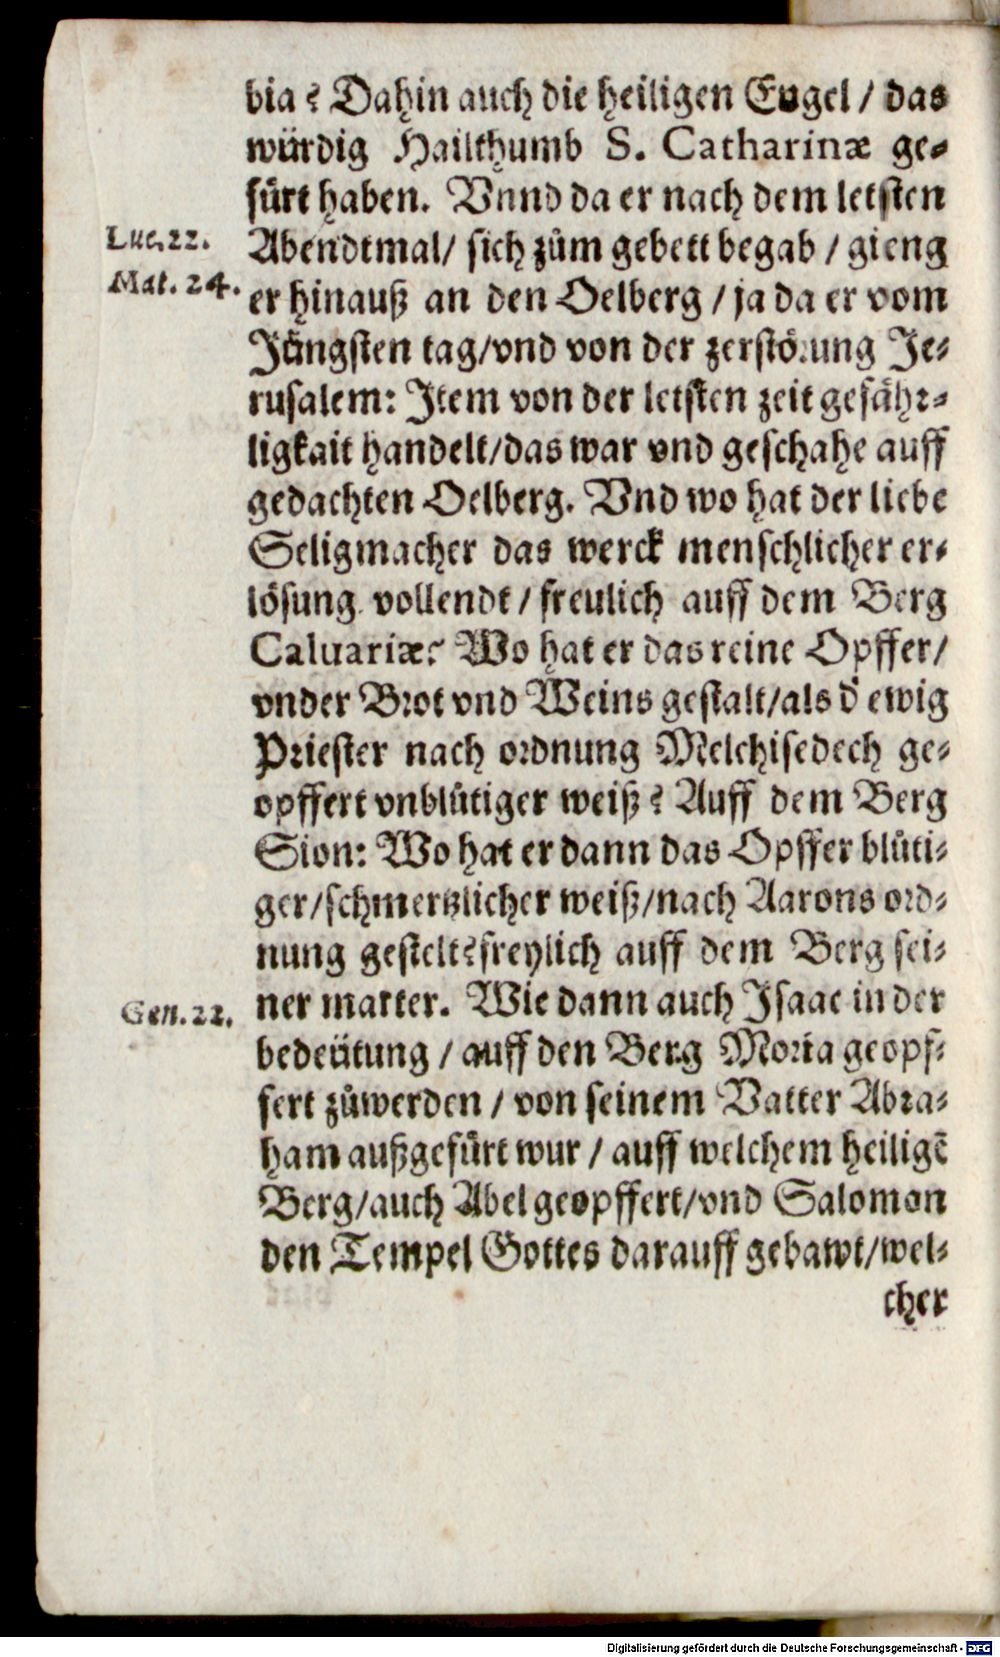 bia? Dahin auch die heiligen Engel / das
würdig Hailthumb S. Catharinæ ge-
fürt haben. Vnnd da er nach dem letsten
Luc. 22.
Abendtmal/ sich zům gebett begab / gieng
Mat. 24.
er hinauß an den Oelberg / ja da er vom
Jüngsten tag/vnd von der zerstörung Je-
rusalem: Item von der letsten zeit gefähr-
ligkait handelt/das war vnd geschahe auff
gedachten Oelberg. Vnd wo hat der liebe
Seligmacher das werck menschlicher er-
lösung vollendt / freulich auff dem Berg
Caluariæ? Wo hat er das reine Opffer/
vnder Brot vnd Weins gestalt/als d' ewig
Priester nach ordnung Melchisedech ge-
opffert vnblůtiger weiß? Auff dem Berg
Sion: Wo hat er dann das Opffer blůti-
ger/schmertzlicher weiß/nach Aarons ord-
nung gestelt? freylich auff dem Berg sei-
Gen. 22.
ner marter. Wie dann auch Isaac in der
bedeütung / auff den Berg Moria geopf-
fert zůwerden / von seinem Vatter Abra-
ham außgefürt wur / auff welchem heiligē
Berg/auch Abel geopffert/vnd Salomon
den Tempel Gottes darauff gebawt/wel-
cher
Digitalisierung gefördert durch die Deutsche Forschungsgemeinschaft - DFG